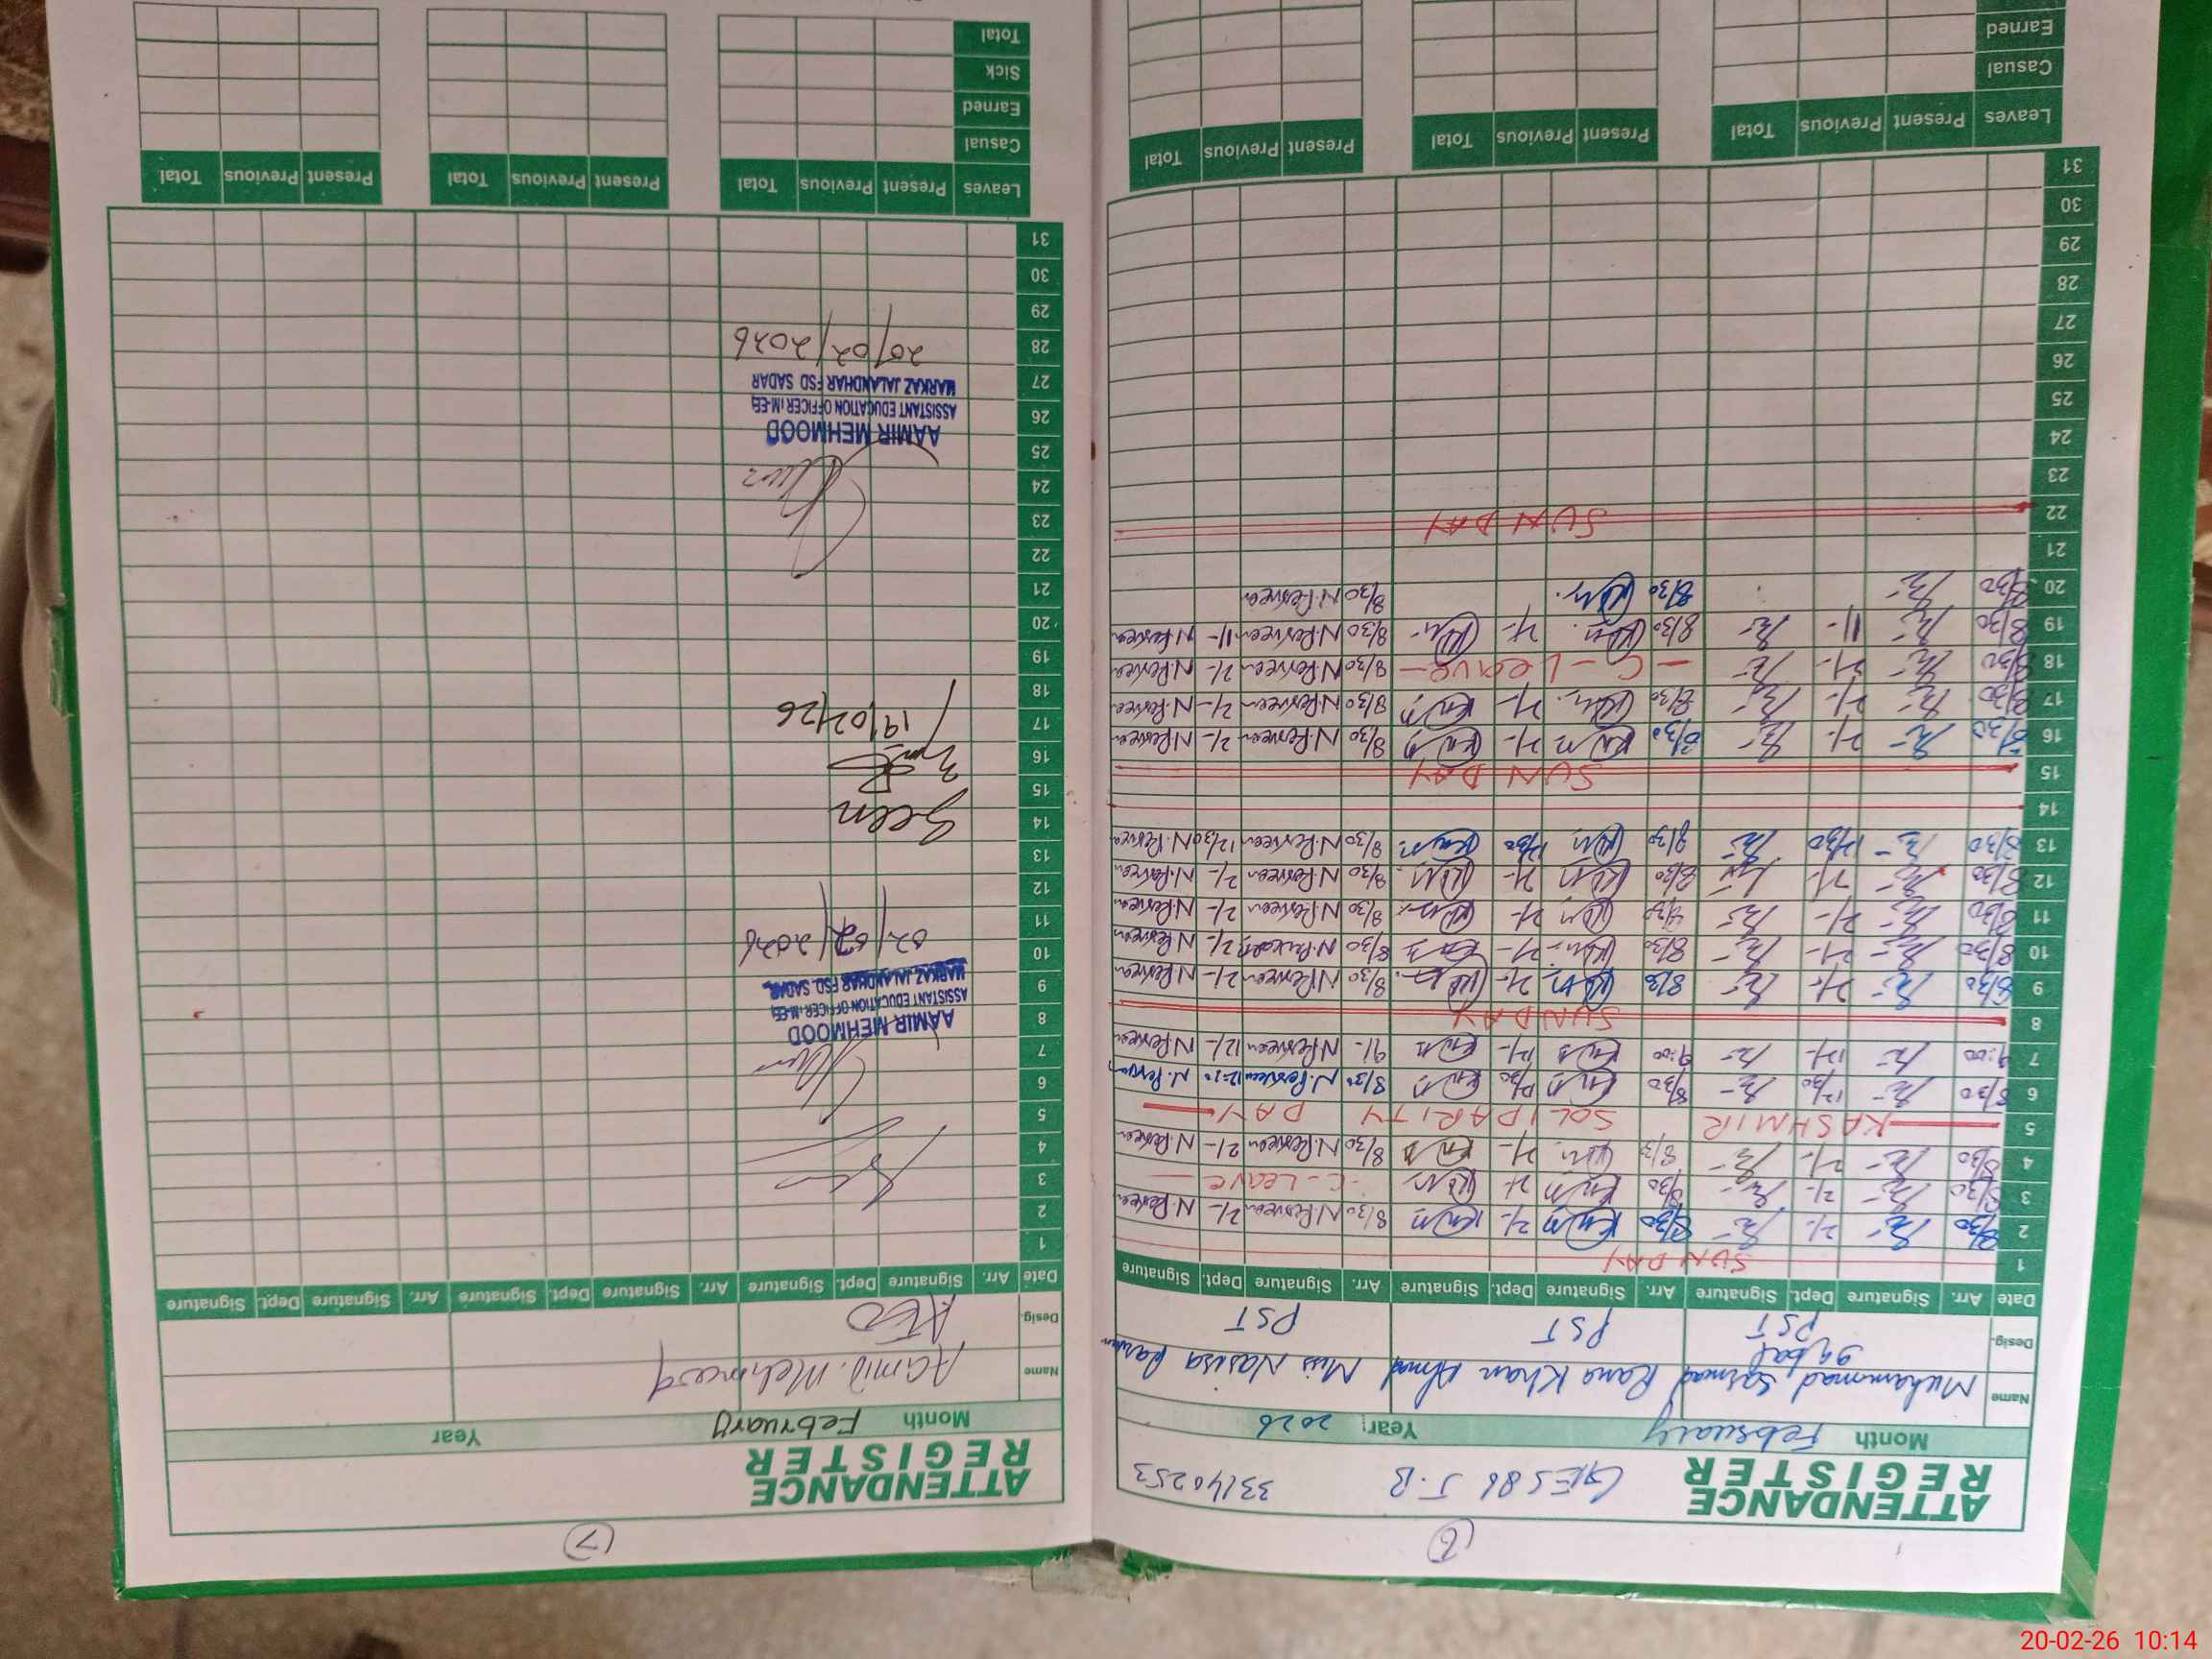 (6)
ATTENDANCE
REGISTER
GES 86 J.B 33140253
Month February Year: 2026
Name Muhammad Salman Rana Khan Ahmad Miss Nasira
Iqbal
Desig. PST PST PST
Date Arr. Signature Dept. Signature Arr. Signature Dept. Signature Arr. Signature Dept. Signature
1 SUNDAY
2 8/30 2/- 8/30 2/- 8/30 N.Perveen 2/- N.Perveen
3 8/30 2/- 8/30 2/- C-Leave
4 8/30 2/- 8/3 2/- 8/30 N.Perveen 2/- N.Perveen
5 KASHMIR SOLIDARITY DAY
6 8/30 12/30 8/30 12/30 8/30 N.Perveen N.Perveen
7 9:00 12/- 9:00 12/- 9/- N.Perveen 12/- N.Perveen
8 SUNDAY
9 8/30 2/- 8/30 2/- 8/30 N.Perveen 2/- N.Perveen
10 8/30 2/- 8/30 2/- 8/30 N.Perveen 2/- N.Perveen
11 8/30 2/- 8/30 2/- 8/30 N.Perveen 2/- N.Perveen
12 8/30 2/- 8/30 2/- 8/30 N.Perveen 2/- N.Perveen
13 8/30 12/30 8/30 12/30 8/30 N.Perveen 12/30 N.Perveen
14
15 SUNDAY
16 8/30 2/- 8/30 2/- 8/30 N.Perveen 2/- N.Perveen
17 8/30 2/- 8/30 2/- 8/30 N.Perveen 2/- N.Perveen
18 8/30 2/- - C-Leave - 8/30 N.Perveen 2/- N.Perveen
19 8/30 11- 8/30 8/30 N.Perveen 11- N.Perveen
20 8/30 8/30 8/30 N.Perveen
21
22 SUNDAY
23
24
25
26
27
28
29
30
31
Leaves Present Previous Total Present Previous Total Present Previous Total
Casual
Earned
(7)
ATTENDANCE
REGISTER
Month February Year
Name Aamir Mehmood
Desig. AEO
Date Arr. Signature Dept. Signature Arr. Signature Dept. Signature Arr. Signature Dept. Signature
1
2
3
4
5
6
7
8
9
10
11
12
13
14
15
16
17
18
19
20
21
22
23
24
25
26
27
28
29
30
31
AAMIR MEHMOOD
ASSISTANT EDUCATION OFFICER (M-EE)
MARKAZ JALANDHAR FSD. SADAR
02/02/2026
Seen
19/02/26
AAMIR MEHMOOD
ASSISTANT EDUCATION OFFICER (M-EE)
MARKAZ JALANDHAR FSD SADAR
20/02/2026
Leaves Present Previous Total Present Previous Total Present Previous Total
Casual
Earned
Sick
Total
20-02-26 10:14